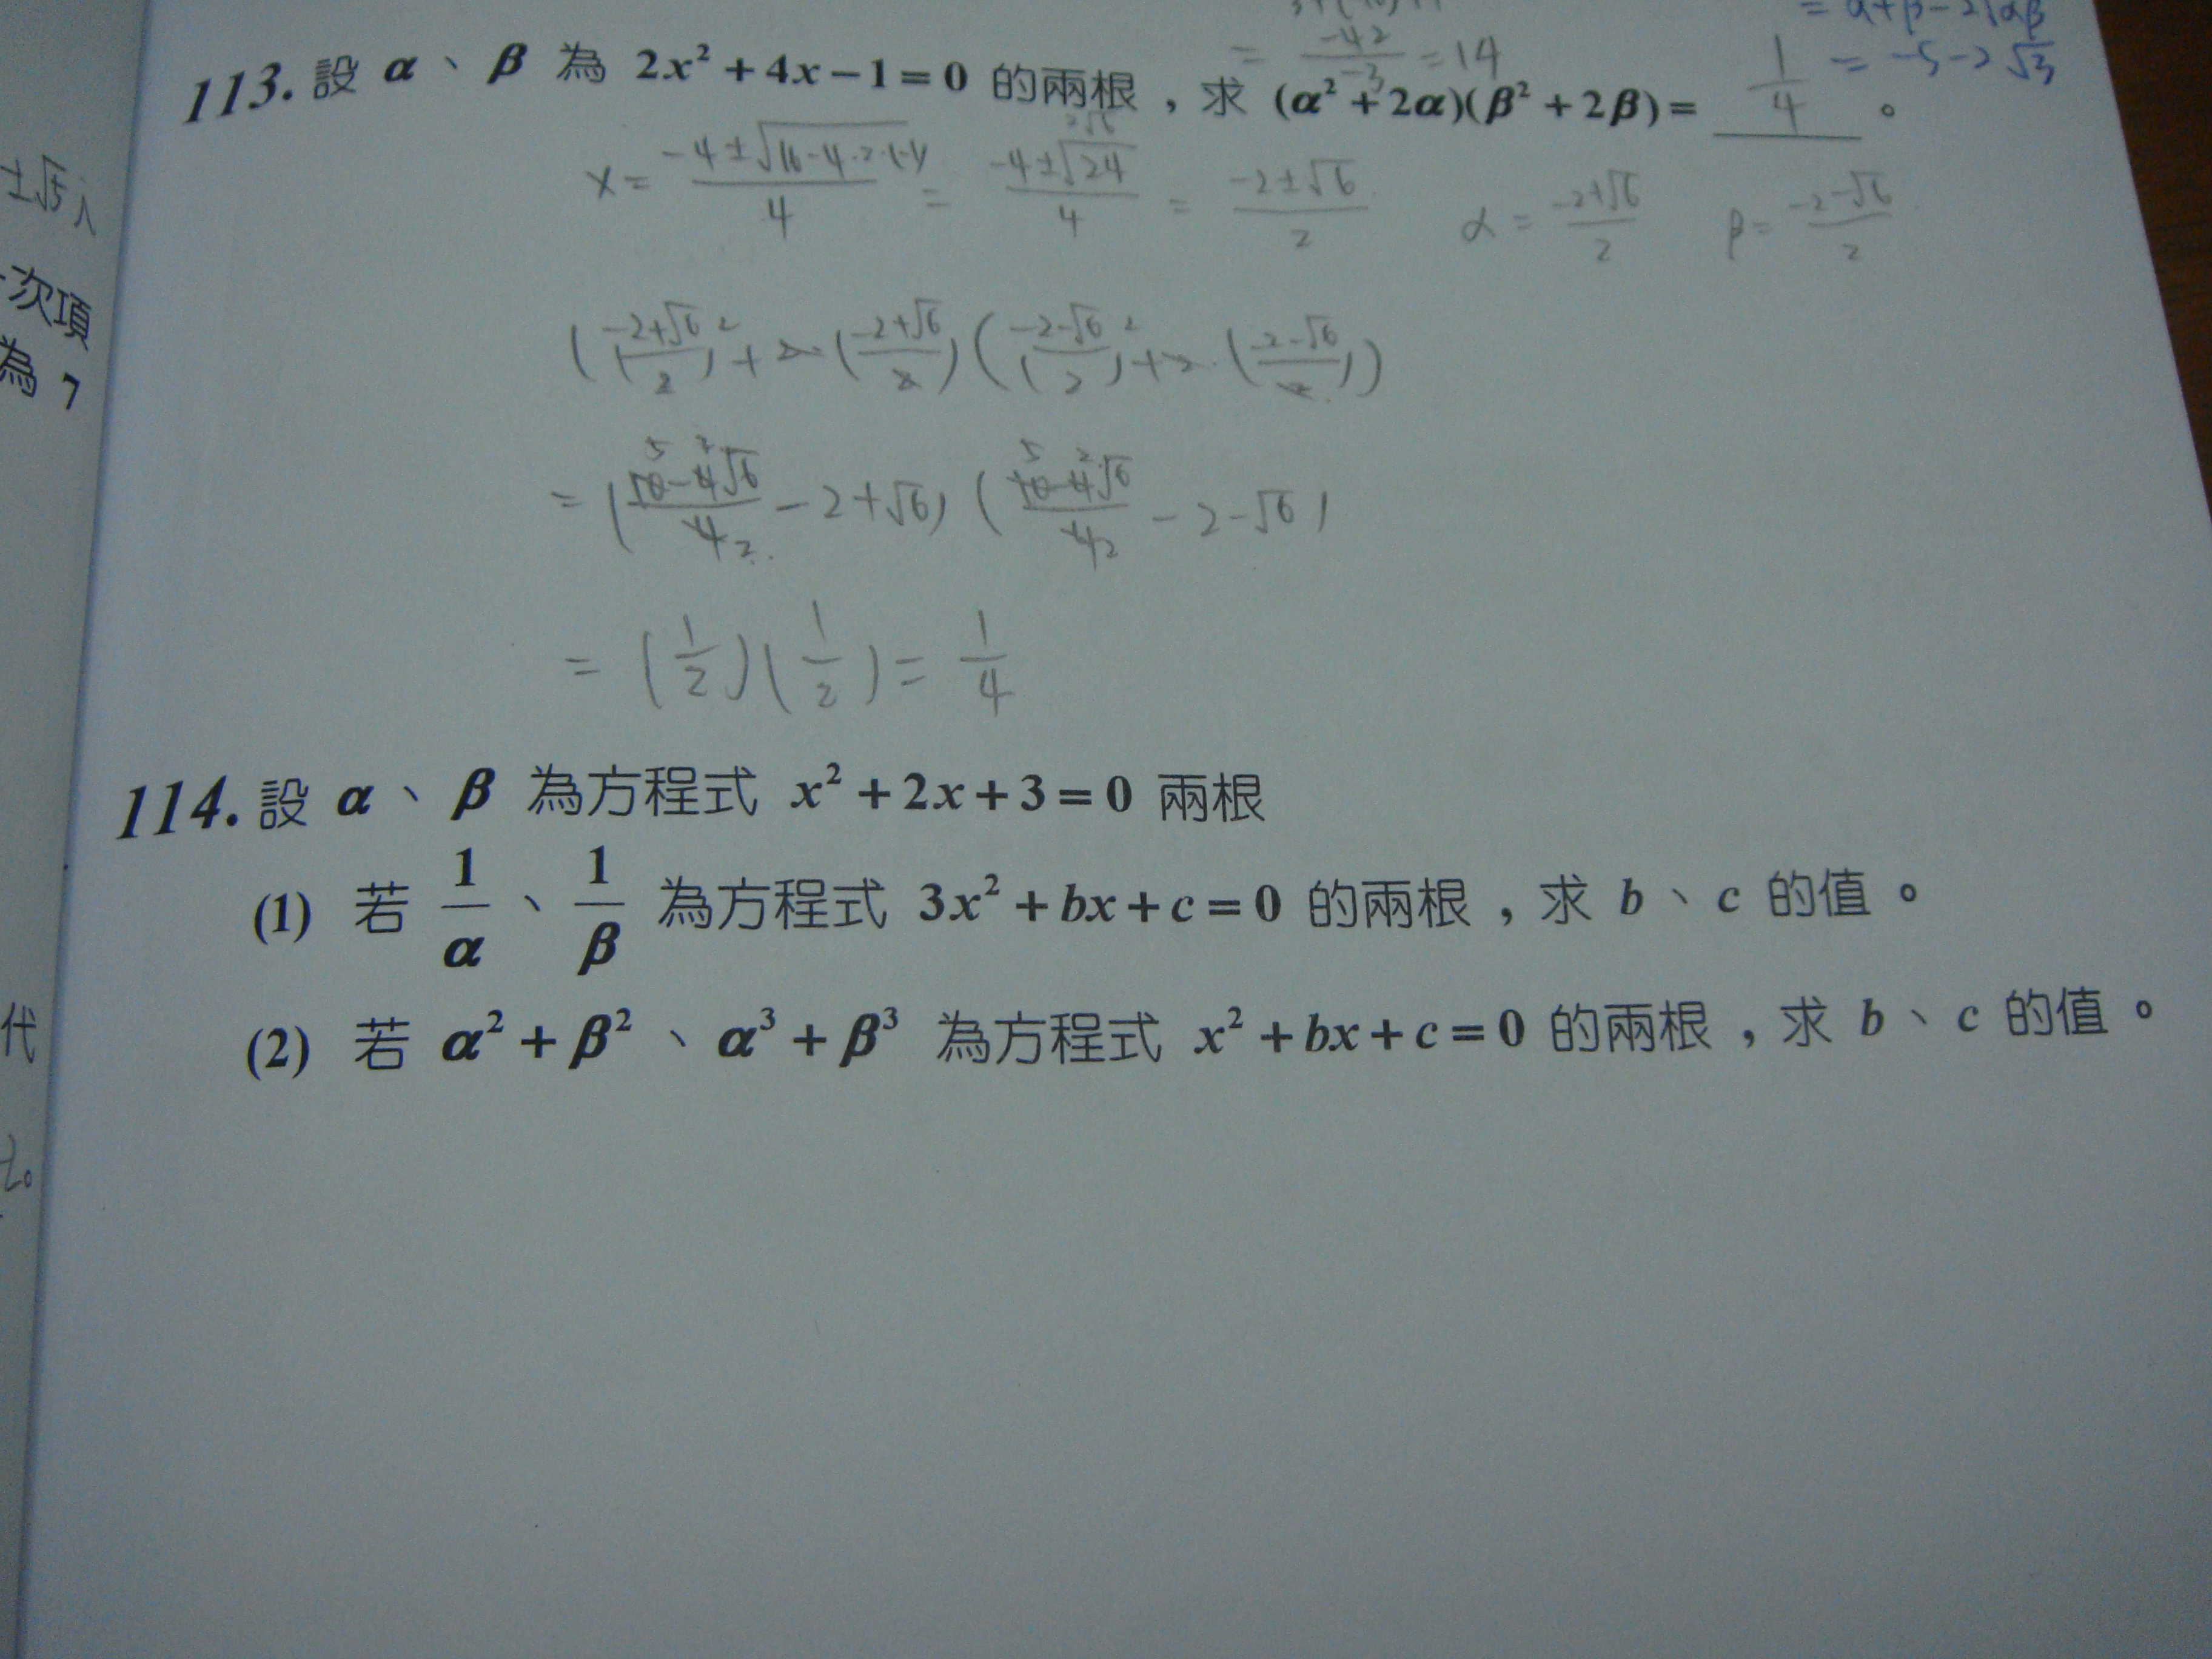 = α+β-2√αβ
= -5-2√3
= -42/-3 = 14
113. 設 α、β 為 2x²+4x-1=0 的兩根，求 (α²+2α)(β²+2β)= 1/4 。
x = (-4±√(16-4·2·(-1)))/4 = (-4±√24)/4 = (-2±√6)/2 α = (-2+√6)/2 β = (-2-√6)/2
(((-2+√6)/2)² + 2·((-2+√6)/2) (((-2-√6)/2)² + 2·((-2-√6)/2))
= ((10-4√6)/4 -2+√6) ((10-4√6)/4 -2-√6)
= (1/2)(1/2) = 1/4
114. 設 α、β 為方程式 x²+2x+3=0 兩根
(1) 若 1/α、1/β 為方程式 3x²+bx+c=0 的兩根，求 b、c 的值。
(2) 若 α²+β²、α³+β³ 為方程式 x²+bx+c=0 的兩根，求 b、c 的值。
±√5 i
次項
為 7
代